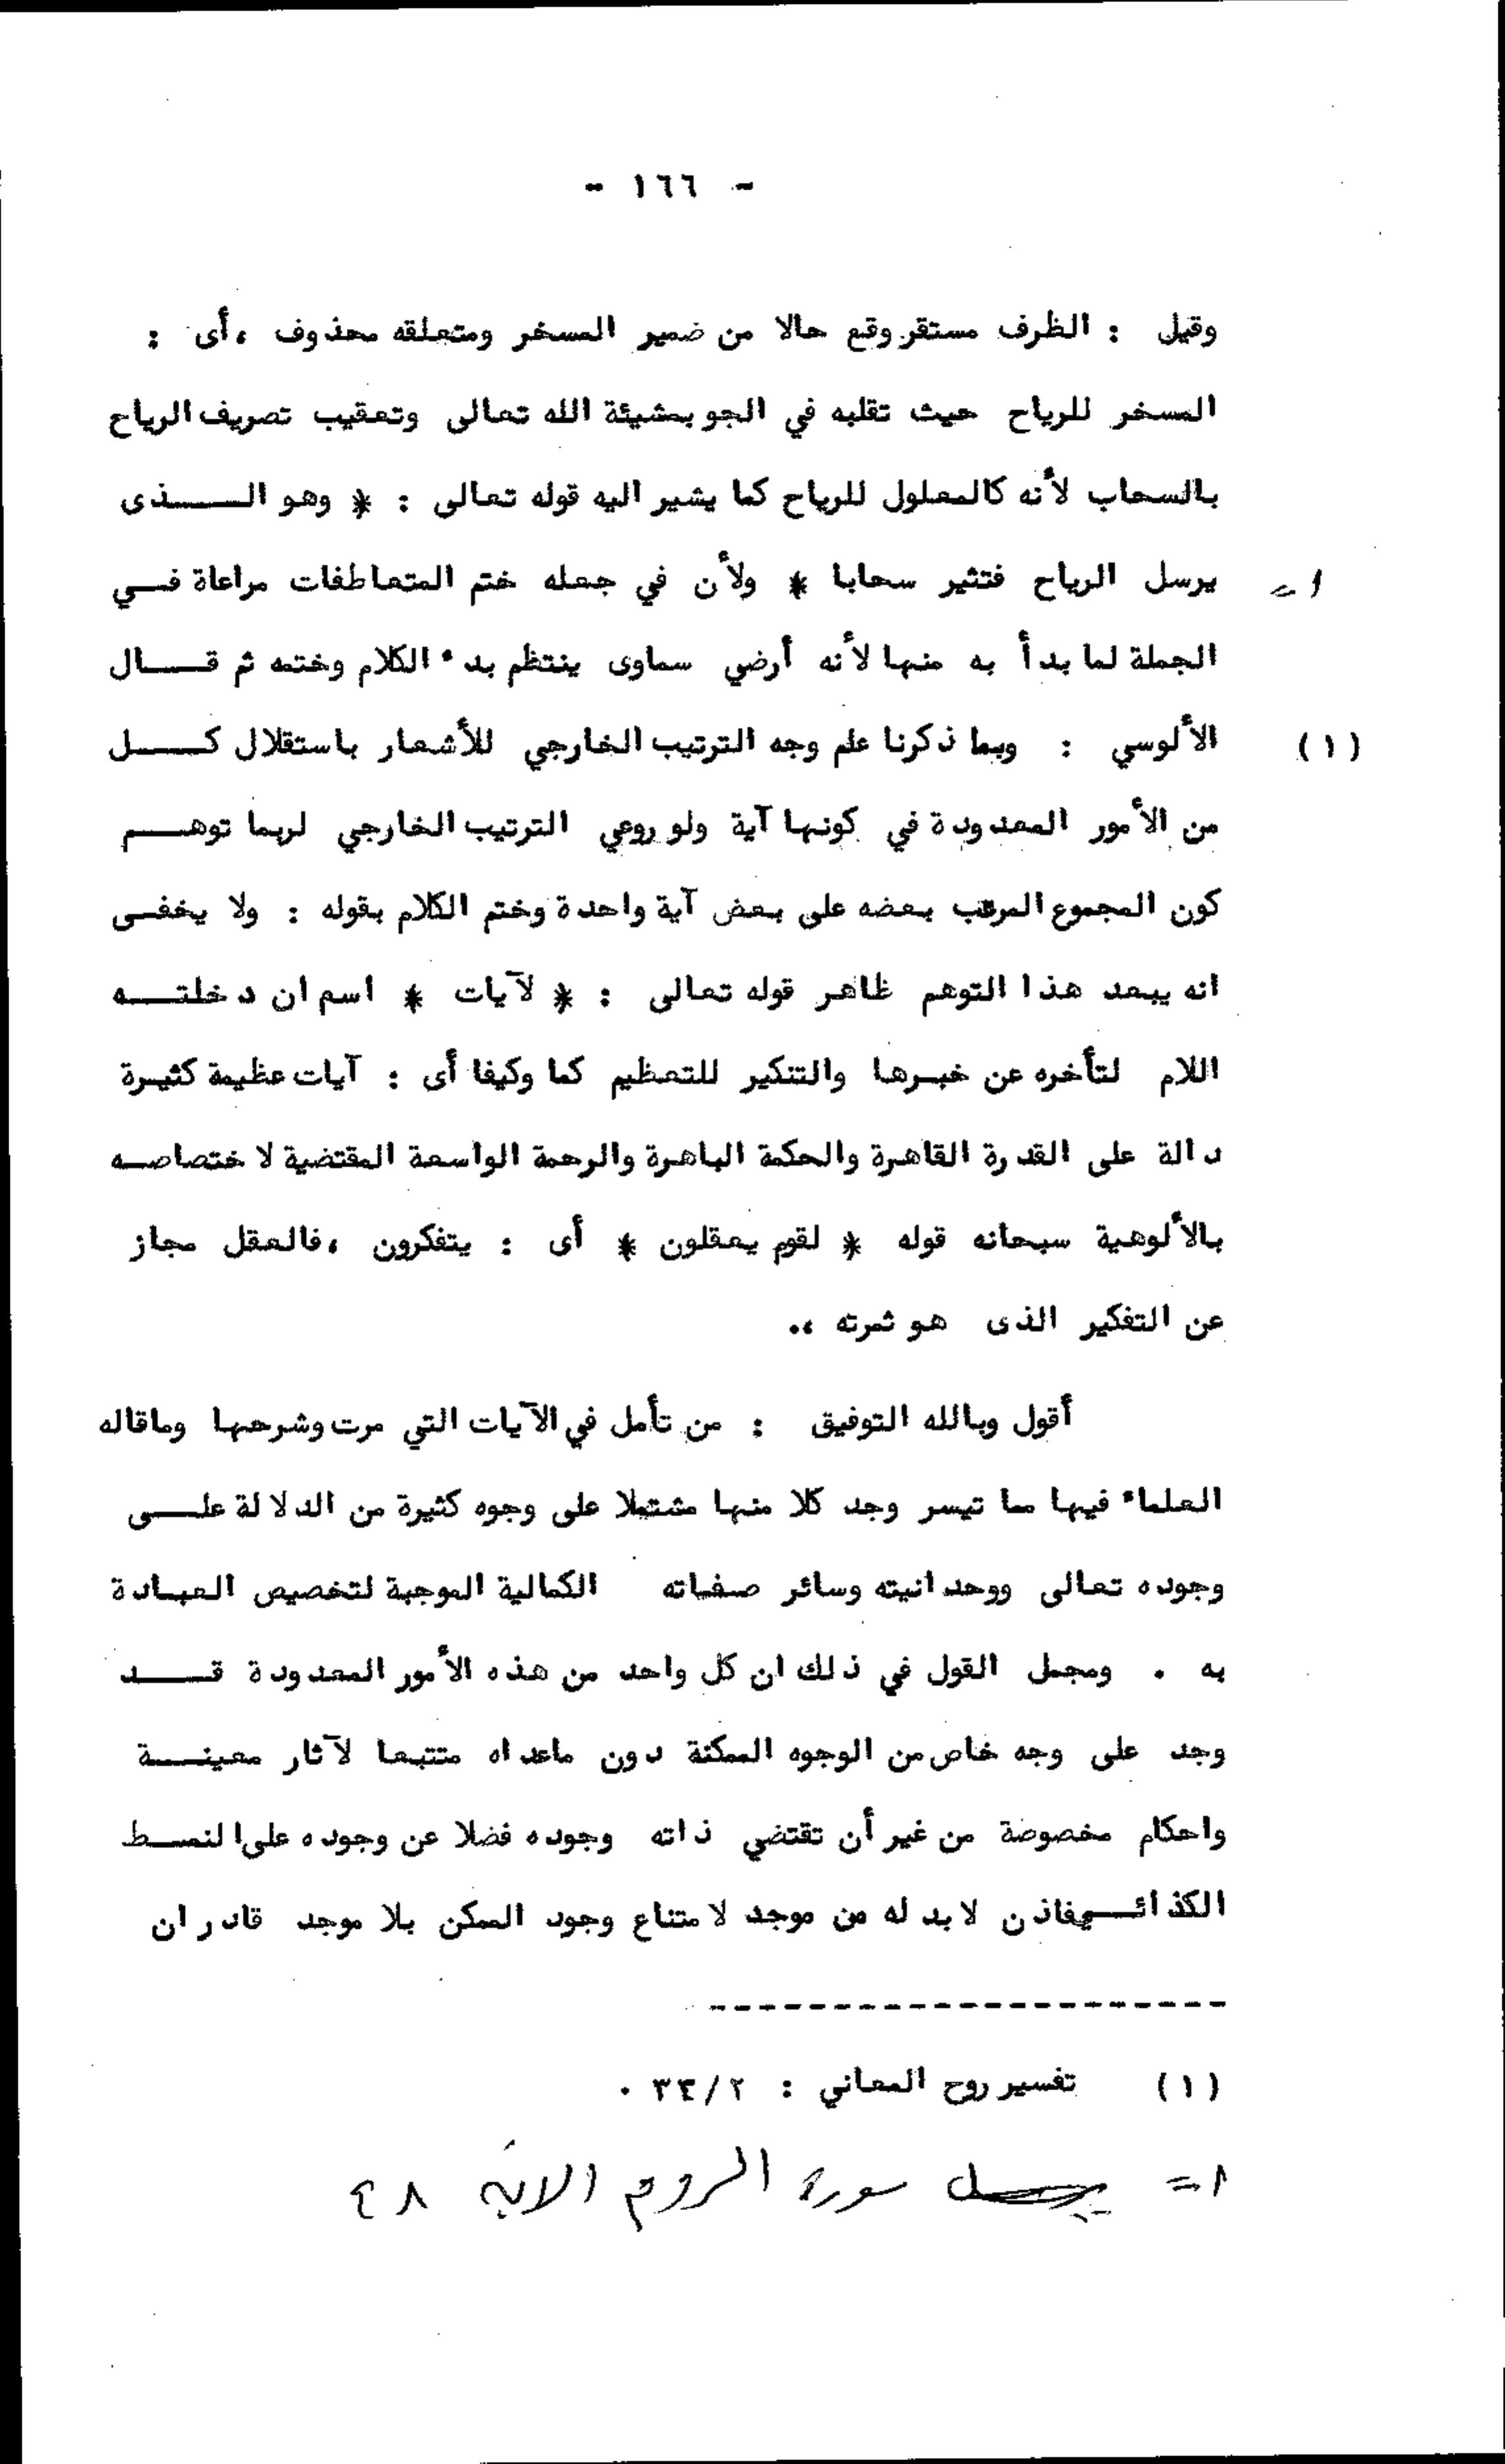 - ١٦٦ -
وقيل : الظرف مستقر وقع حالا من ضمير المسخر ومتعلقه محذوف ،أى :
المسخر للرياح حيث تقلبه في الجو بمشيئة الله تعالى وتعقيب تصريف الرياح
بالسحاب لأنه كالمعلول للرياح كما يشير اليه قوله تعالى : * وهو الـــــذى
١= يرسل الرياح فتثير سحابا * ولأن في جعله ختم المتعاطفات مراعاة فـــي
الجملة لما بدأ به منها لأنه أرضي سماوى ينتظم بدء الكلام وختمه ثم قـــــال
(١) الألوسي : وبما ذكرنا علم وجه الترتيب الخارجي للأشعار باستقلال كـــــل
من الأمور المعدودة في كونها آية ولو روعي الترتيب الخارجي لربما توهـــم
كون المجموع المرتب بعضه على بعض آية واحدة وختم الكلام بقوله : ولا يخفـى
انه يبعد هذا التوهم ظاهر قوله تعالى : * لآيات * اسم ان دخلتـــه
اللام لتأخره عن خبـرها والتنكير للتعظيم كما وكيفا أى : آيات عظيمة كثيـرة
دالة على القدرة القاهرة والحكمة الباهرة والرحمة الواسعة المقتضية لاختصاصـه
بالألوهية سبحانه قوله * لقوم يعقلون * أى : يتفكرون ،فالعقل مجاز
عن التفكير الذى هو ثمرته ،.
أقول وبالله التوفيق : من تأمل في الآيات التي مرت وشرحها وماقاله
العلماء فيها مما تيسر وجد كلا منها مشتملا على وجوه كثيرة من الدلالة علـــى
وجوده تعالى ووحدانيته وسائر صفـاته الكمالية الموجبة لتخصيص العبـادة
به . ومجمل القول في ذلك ان كل واحد من هذه الأمور المعدودة قـــــد
وجد على وجه خاص من الوجوه الممكنة دون ماعداه متتبعا لآثار معينـــة
واحكام مخصوصة من غير أن تقتضي ذاته وجوده فضلا عن وجوده على النمـــط
الكذائـــي فاذن لابد له من موجد لامتناع وجود الممكن بلا موجد قادر ان
(١) تفسير روح المعاني : ٣٣/٢ .
١= سورة الروم الاية ٤٨